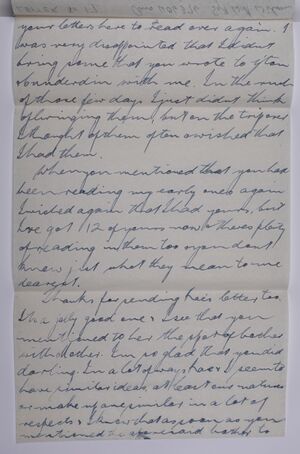 your letters here to read over again. I
was very disappointed that I didnt
bring some that you wrote to
with me. In the rush
of those few days I just didnt think
of bringing them, but on the trip over
I thought of them often & wished that
I had them.
When you mentioned that you had
been reading my early ones again
I wished again that I had yours, but
Ive got 12 of yours now & theres plenty
of reading in them too & you dont
know just what they mean to me
dearest.
Thanks for sending letter too.
Its a jolly good one & I see that you
mentioned to her the spot of bother
with Mother. Im so glad that you did
darling. In a lot of ways & I seem to
have similar ideas, at least our natures
or make up are similar in a lot of
respects & I knew that as soon as you
mentioned bother to